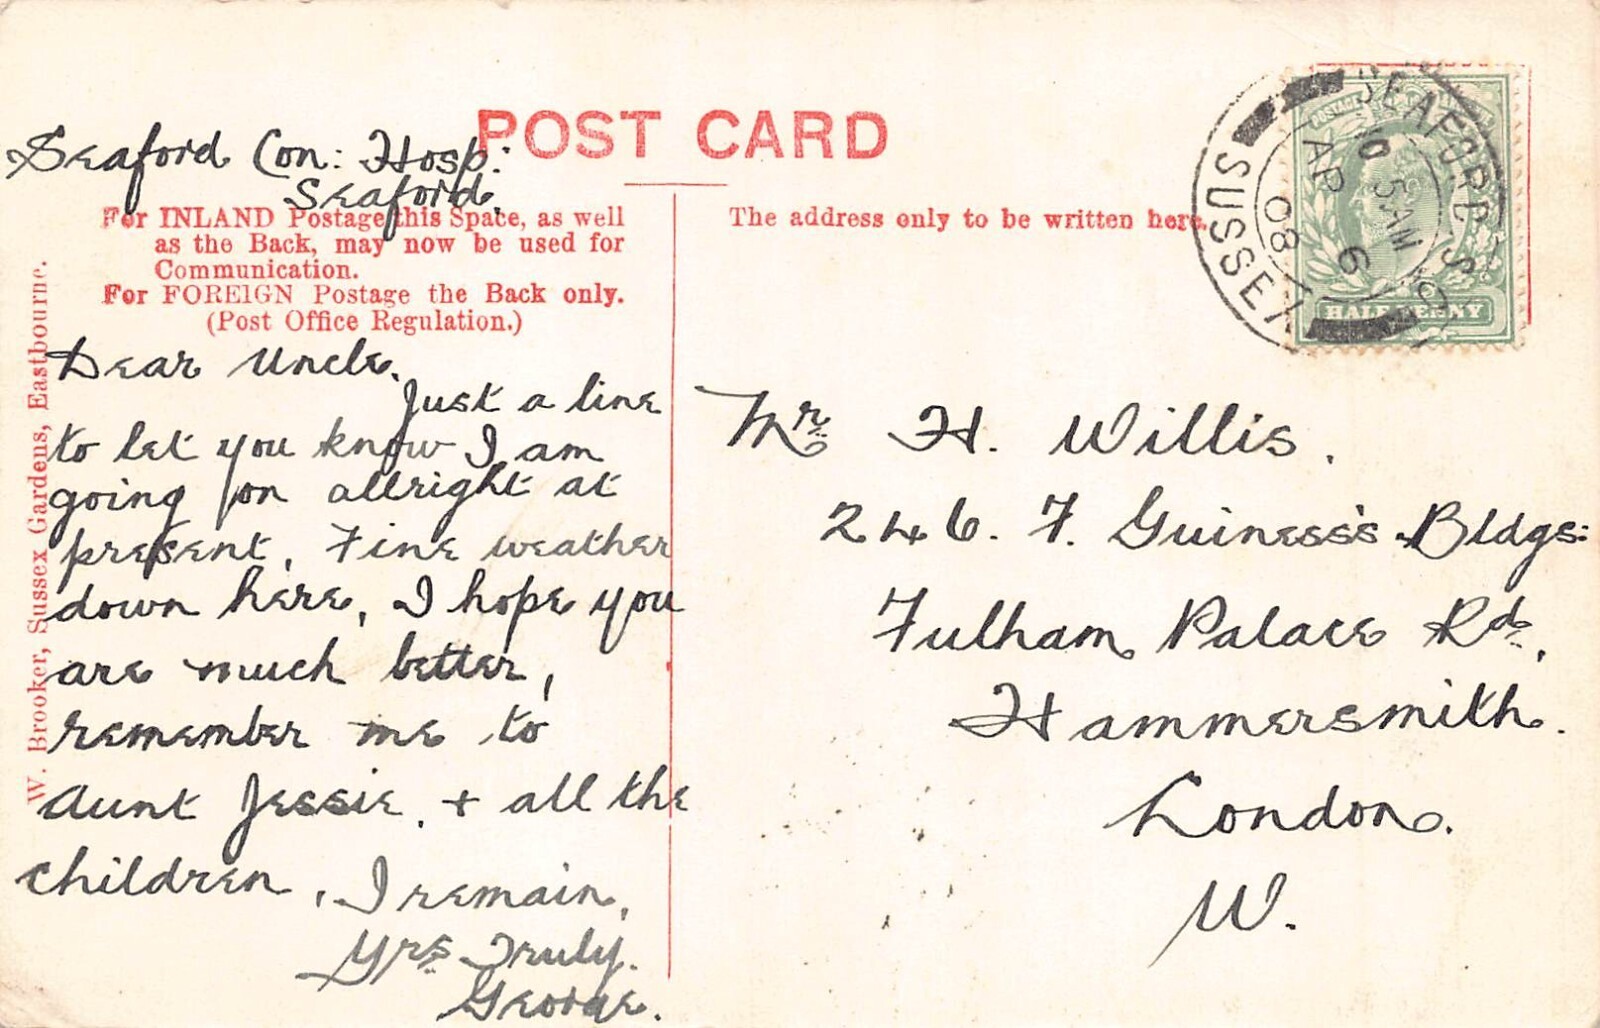 POST CARD
Seaford Con: Hosp:
Seaford.
For INLAND Postage this Space, as well
as the Back, may now be used for
Communication.
For FOREIGN Postage the Back only.
(Post Office Regulation.)
The address only to be written here.
W. Brooker, Sussex Gardens, Eastbourne.
Dear Uncle.
Just a line
to let you know I am
going on allright at
present. Fine weather
down here, I hope you
are much better,
remember me to
Aunt Jessie. + all the
children. I remain,
Yrs Truly.
George.
Mr H. Willis.
246. F. Guiness's Bldgs:
Fulham Palace Rd.,
Hammersmith.
London.
W.
SEAFORD S.O.
SUSSEX
10 5 AM
AP 6
08
HALF PENNY